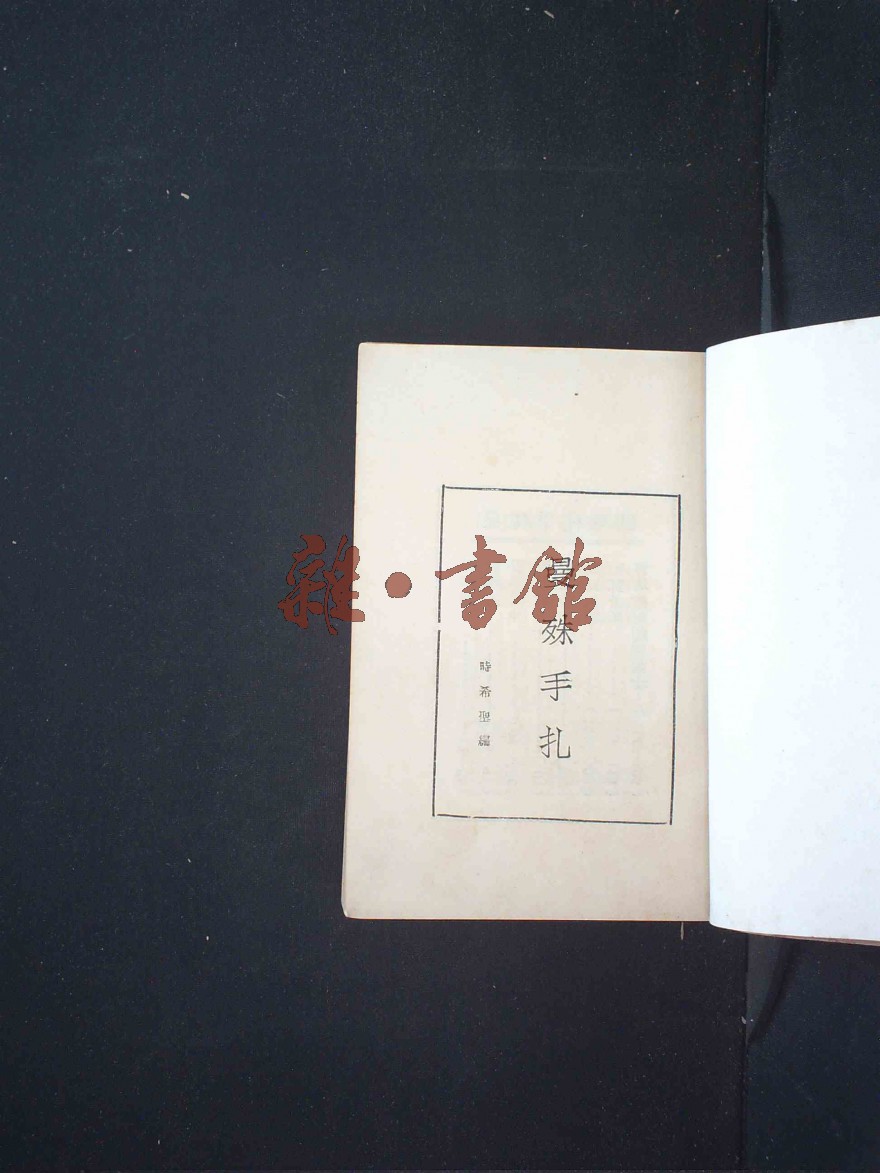 曼殊手扎
時希聖編
雜·書館